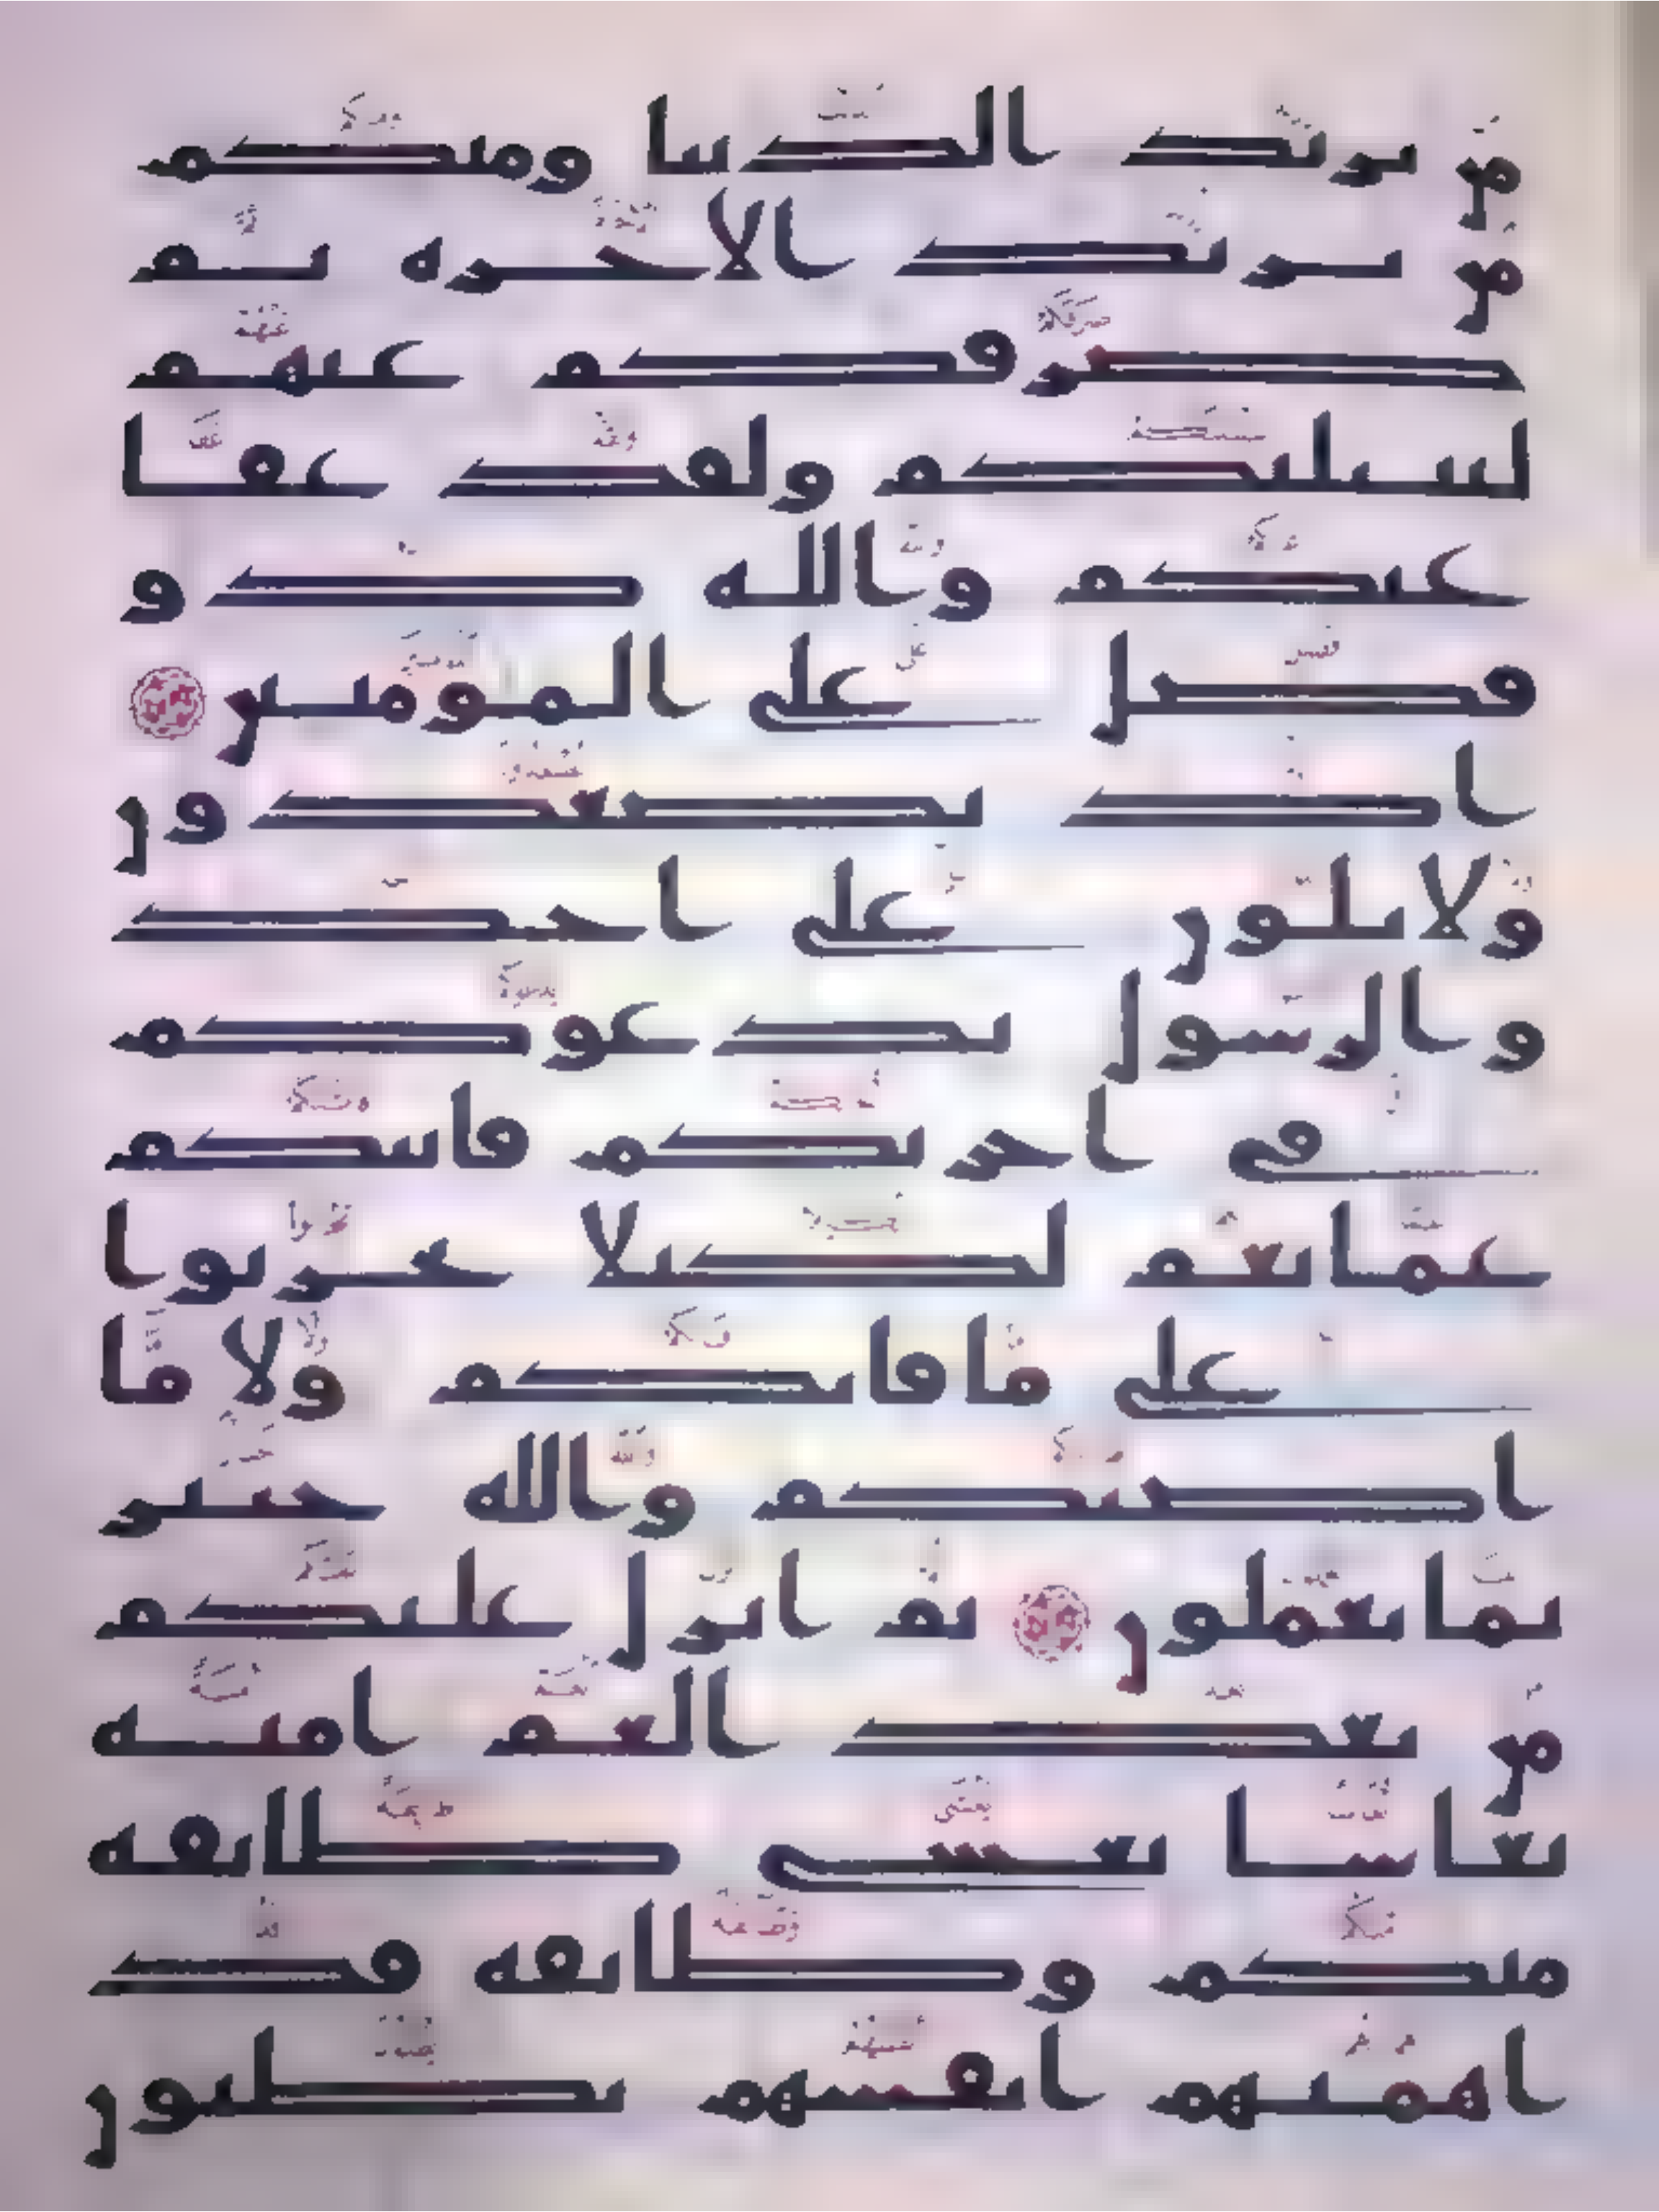 من يريد الدنيا ومنكم
من يريد الاخره ثم
صرفكم عنهم
ليبتليكم ولقد عفا
عنكم والله ذو
فضل على المومنين
اذ تصعدون
ولا تلون على احد
والرسول يدعوكم
في اخريكم فاثبكم
غما بغم لكيلا تحزنوا
على ما فاتكم ولا ما
اصبكم والله خبير
بما تعملون ثم انزل عليكم
من بعد الغم امنه
نعاسا يغشى طايفه
منكم وطايفه قد
اهمتهم انفسهم يظنون